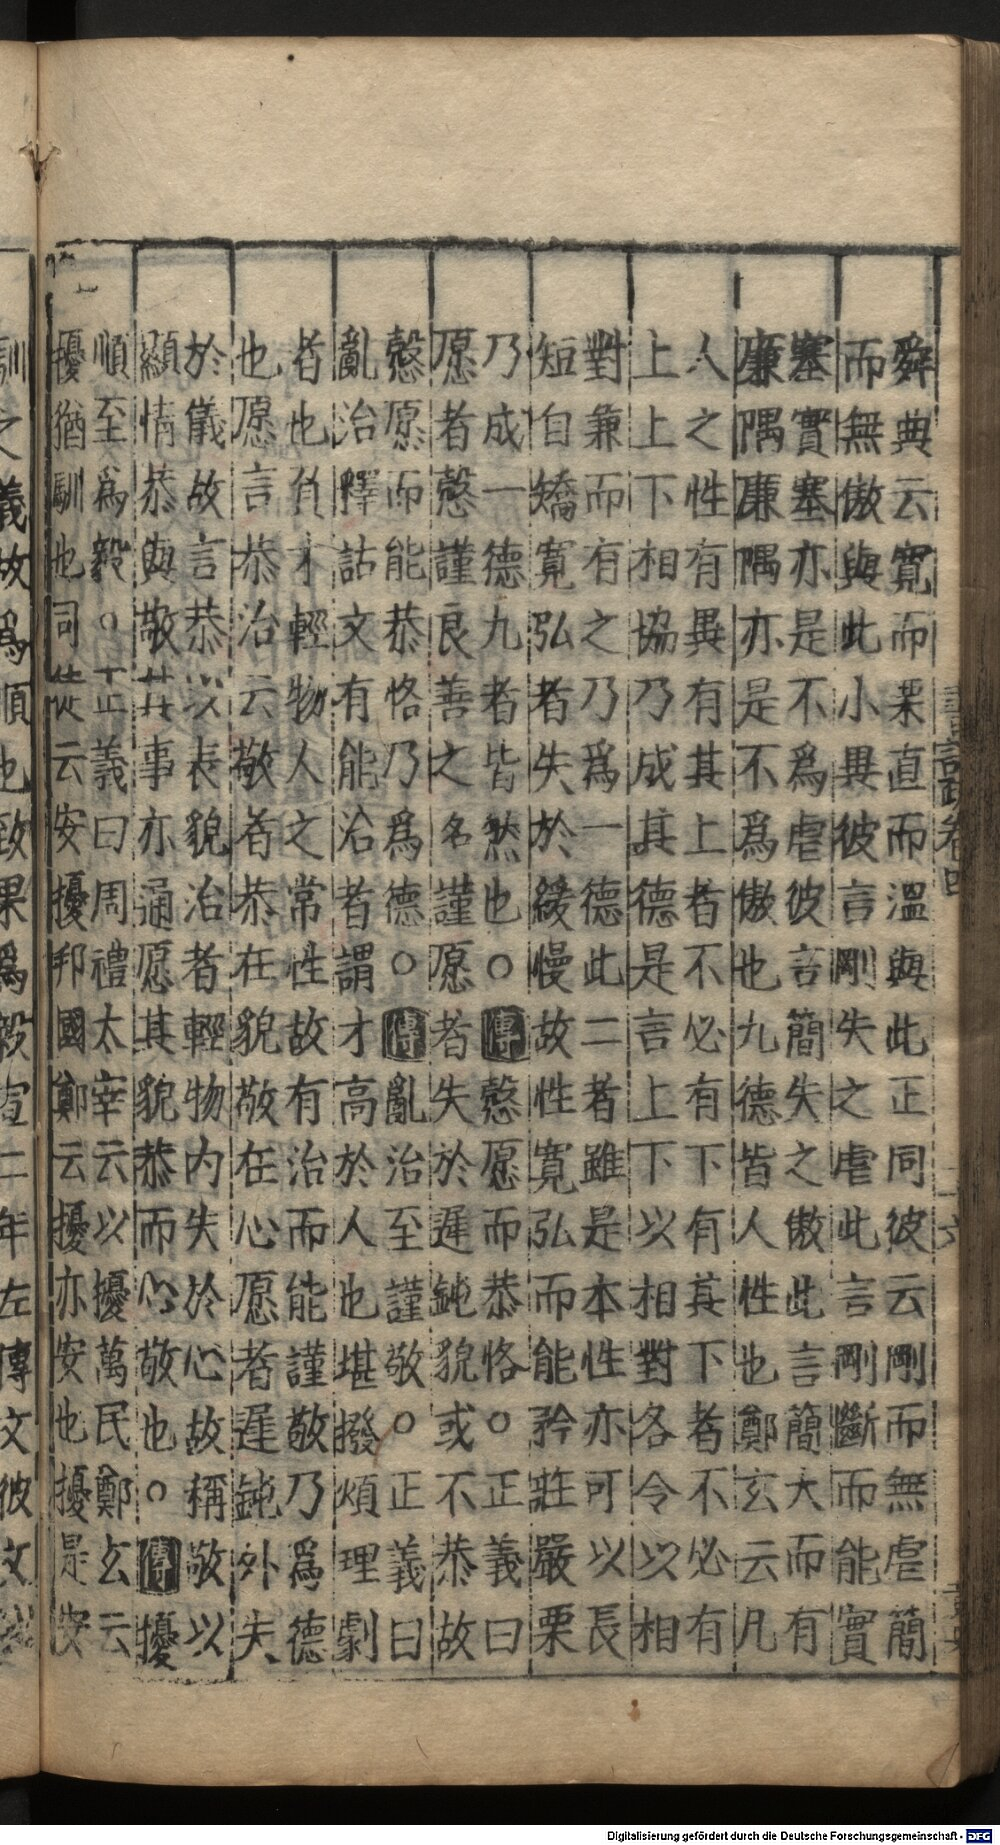 舜典云寬而栗直而溫與此正同彼云剛而無虐簡
而無傲與此小異彼言剛失之虐此言剛斷而能實
塞實塞亦是不爲虐彼言簡失之傲此言簡大而有
廉隅廉隅亦是不爲傲也九德皆人性也鄭玄云凡
人之性有異有其上者不必有下有其下者不必有
上上下相協乃成其德是言上下以相對各令以相
對兼而有之乃爲一德此二者雖是本性亦可以長
短自矯寬弘者失於緩慢故性寬弘而能矜莊嚴栗
乃成一德九者皆然也○傳愨愿而恭恪○正義曰
愿者愨謹良善之名謹愿者失於遲鈍貌或不恭故
愨愿而能恭恪乃爲德○傳亂治至謹敬○正義曰
亂治釋詁文有能治者謂才高於人也堪撥煩理劇
者也負才輕物人之常性故有治而能謹敬乃爲德
也愿言恭治云敬者恭在貌敬在心愿者遲鈍外失
於儀故言恭以表貌治者輕物內失於心故稱敬以
顯情恭與敬其事亦通愿其貌恭而心敬也○傳擾
順至爲毅○正義曰周禮太宰云以擾萬民鄭玄云
擾猶馴也司徒云安擾邦國鄭云擾亦安也擾是安
馴之義故爲順也致果爲毅宣二年左傳文彼文
Digitalisierung gefördert durch die Deutsche Forschungsgemeinschaft - DFG